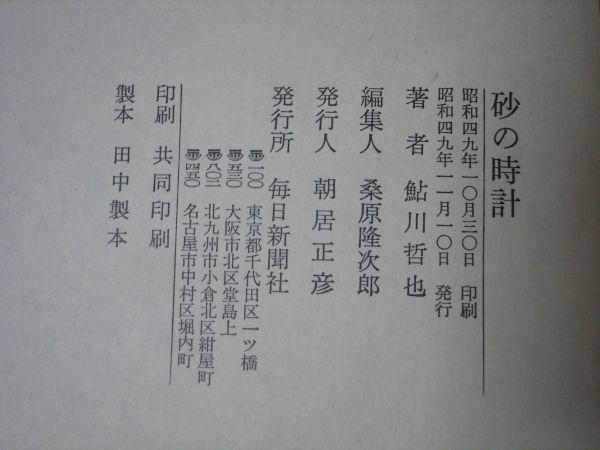 砂の時計
昭和四九年一〇月三〇日 印刷
昭和四九年一一月一〇日 発行
著者 鮎川哲也
編集人 桑原隆次郎
発行人 朝居正彦
発行所 毎日新聞社
〒一〇〇 東京都千代田区一ツ橋
〒五三〇 大阪市北区堂島上
〒八〇二 北九州市小倉北区紺屋町
〒四五〇 名古屋市中村区堀内町
印刷 共同印刷
製本 田中製本